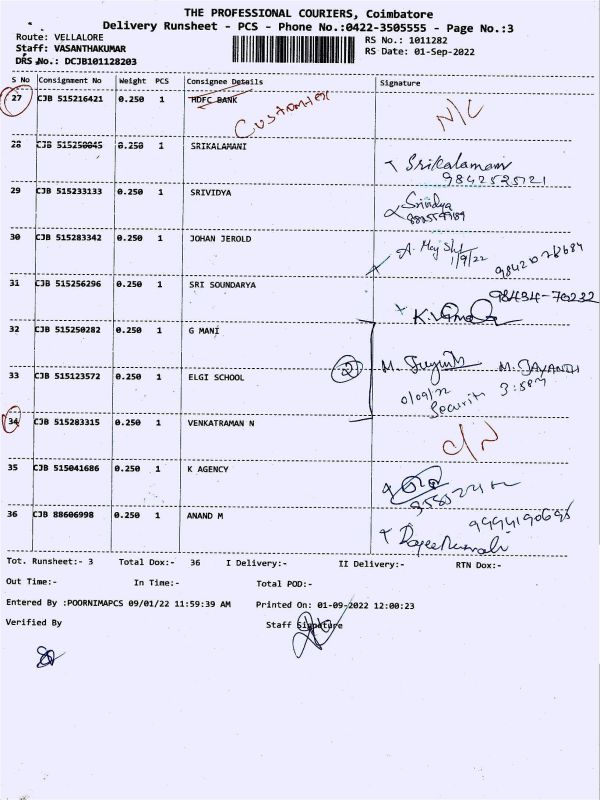 THE PROFESSIONAL COURIERS, Coimbatore
Delivery Runsheet - PCS - Phone No.:0422-3505555 - Page No.:3
Route: VELLALORE
RS No.: 1011282
Staff: VASANTHAKUMAR
RS Date: 01-Sep-2022
DRS No.: DCJB101128203
S No Consignment No Weight PCS Consignee Details Signature
27 CJB 515216421 0.250 1 HDFC BANK N/C
CUSTOMER
28 CJB 515250045 0.250 1 SRIKALAMANI
Srikalamani
9842535121
29 CJB 515233133 0.250 1 SRIVIDYA
Srividya
30 CJB 515283342 0.250 1 JOHAN JEROLD
1/9/22
31 CJB 515256296 0.250 1 SRI SOUNDARYA
98434-70232
32 CJB 515250282 0.250 1 G MANI
2 M. M. JAYANTH
33 CJB 515123572 0.250 1 ELGI SCHOOL
Security
34 CJB 515283315 0.250 1 VENKATRAMAN N
35 CJB 515041686 0.250 1 K AGENCY
36 CJB 88606998 0.250 1 ANAND M
Tot. Runsheet:- 3 Total Dox:- 36 I Delivery:- II Delivery:- RTN Dox:-
Out Time:- In Time:- Total POD:-
Entered By :POORNIMAPCS 09/01/22 11:59:39 AM Printed On: 01-09-2022 12:00:23
Verified By Staff Signature